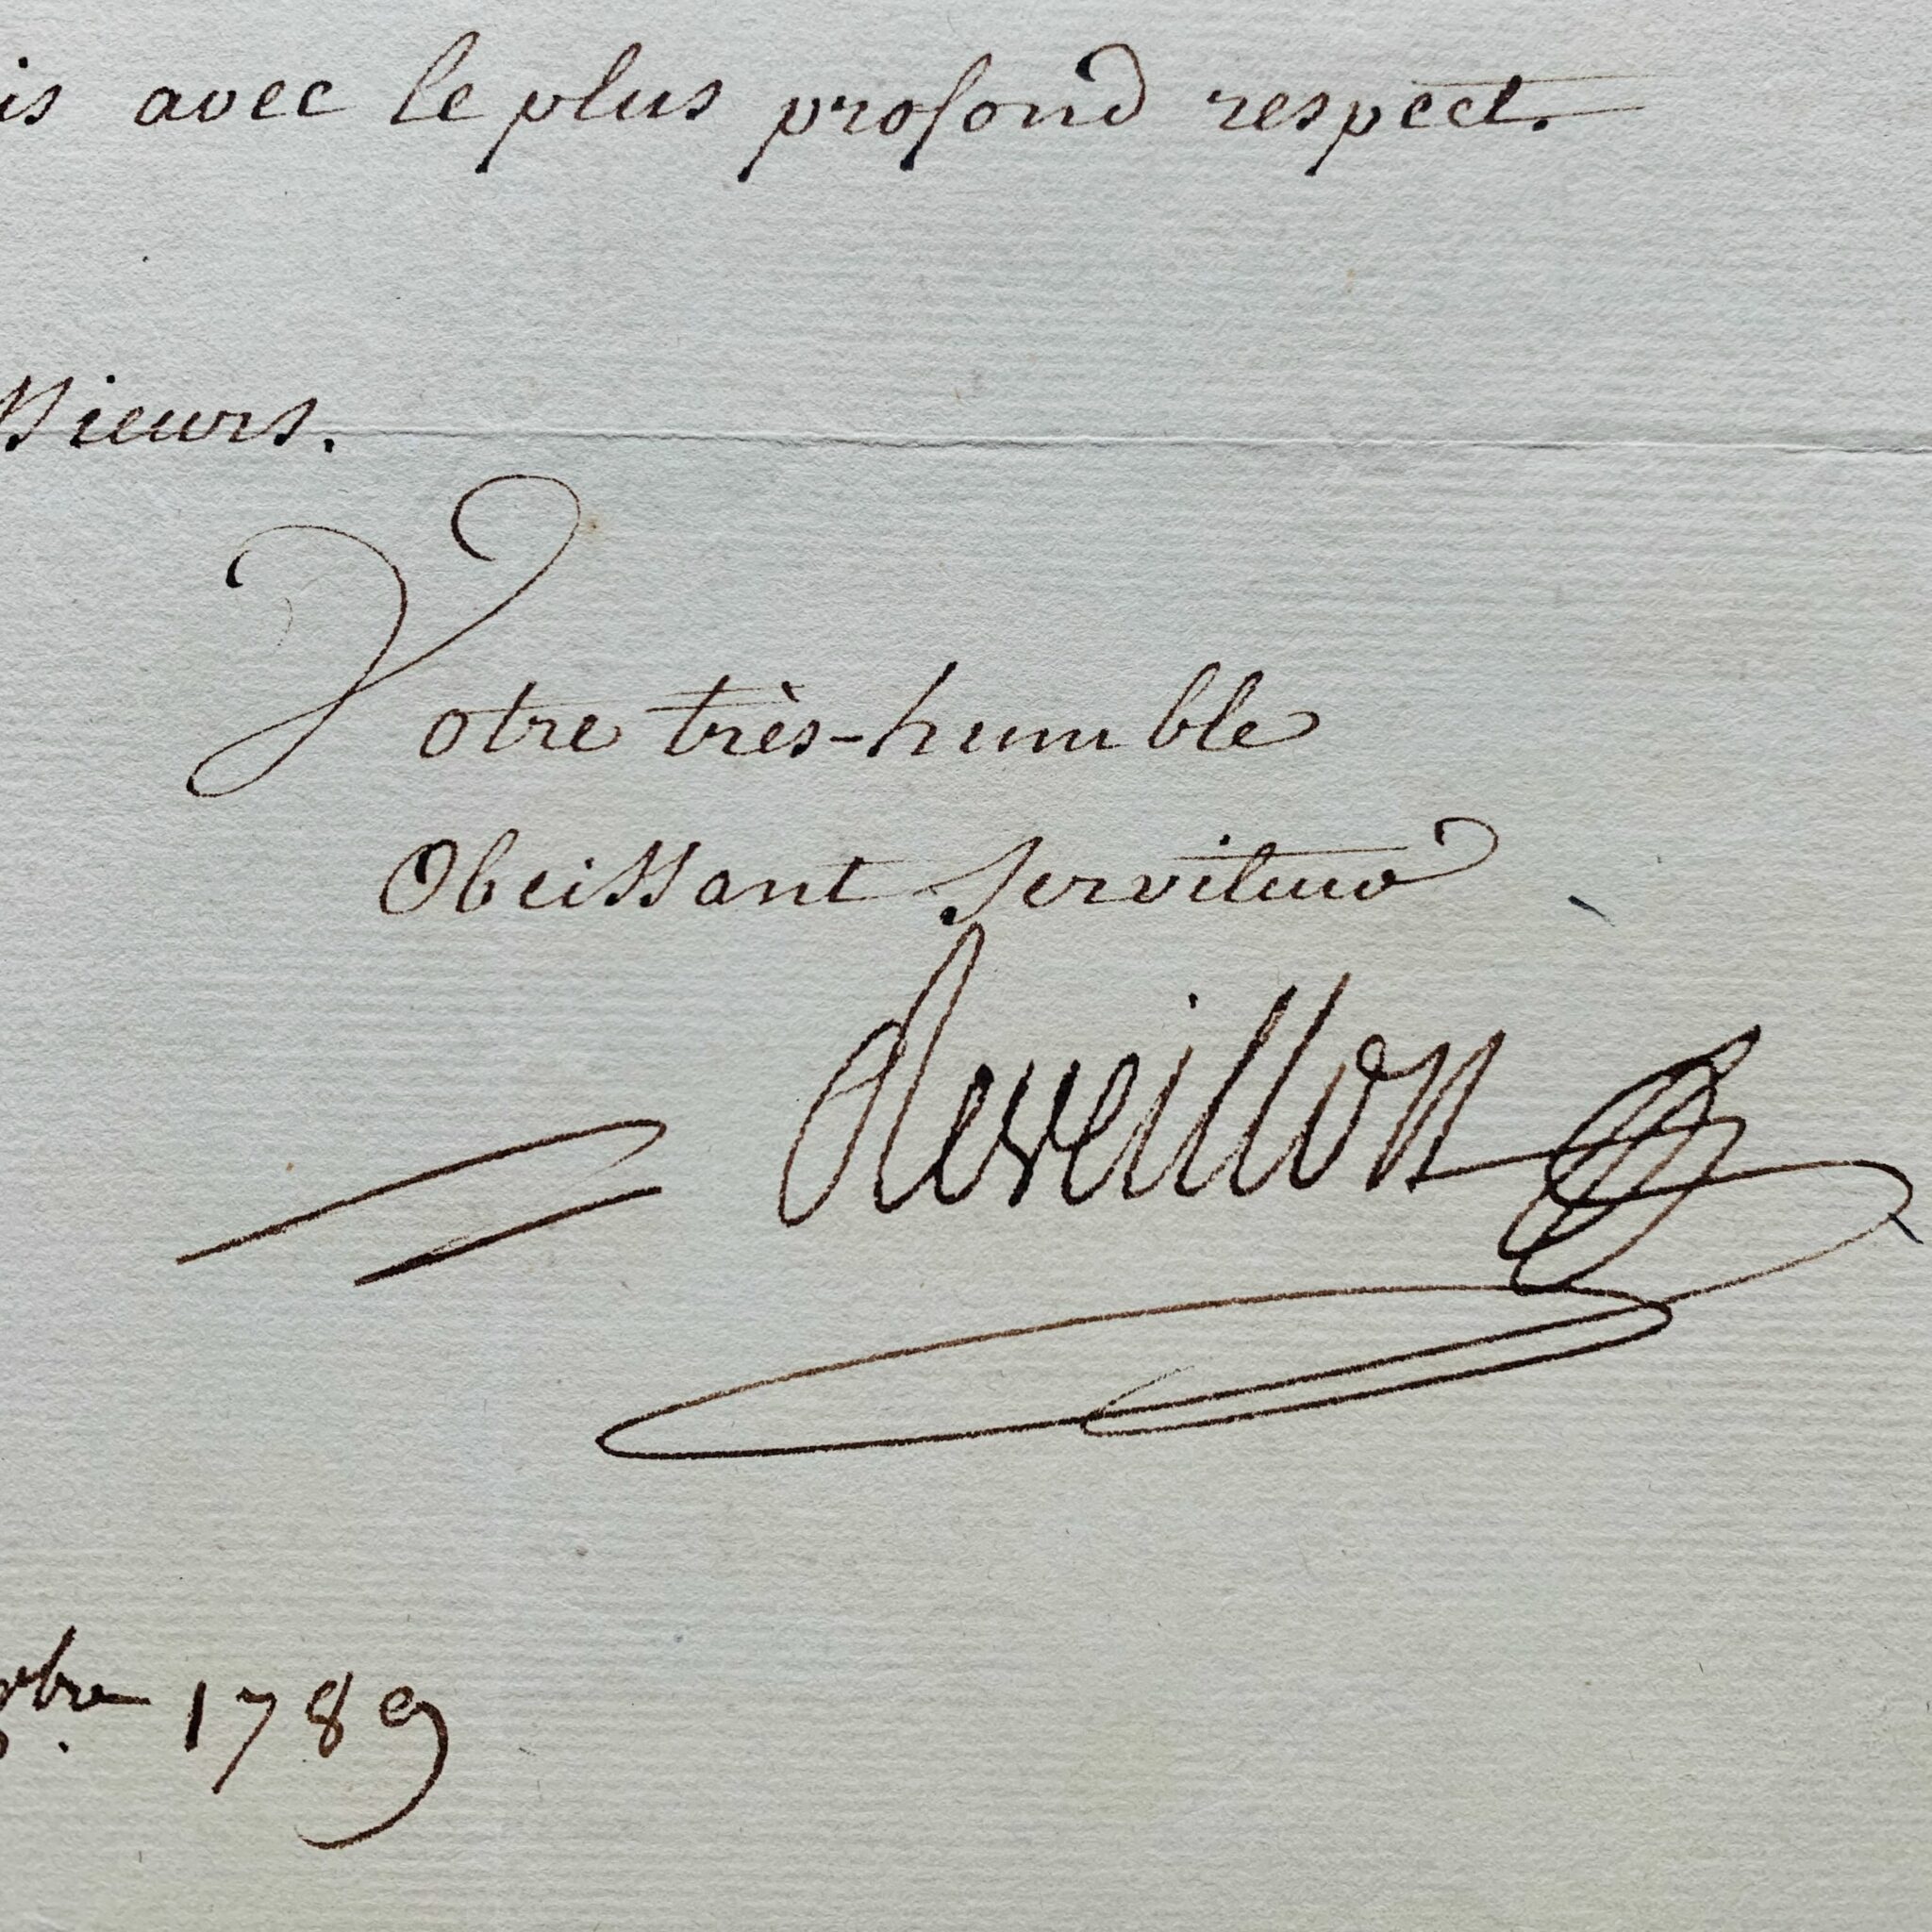 is avec le plus profond respect.
ssieurs.
Votre très-humble
Obeissant serviteur
Reveillon
bre. 1789